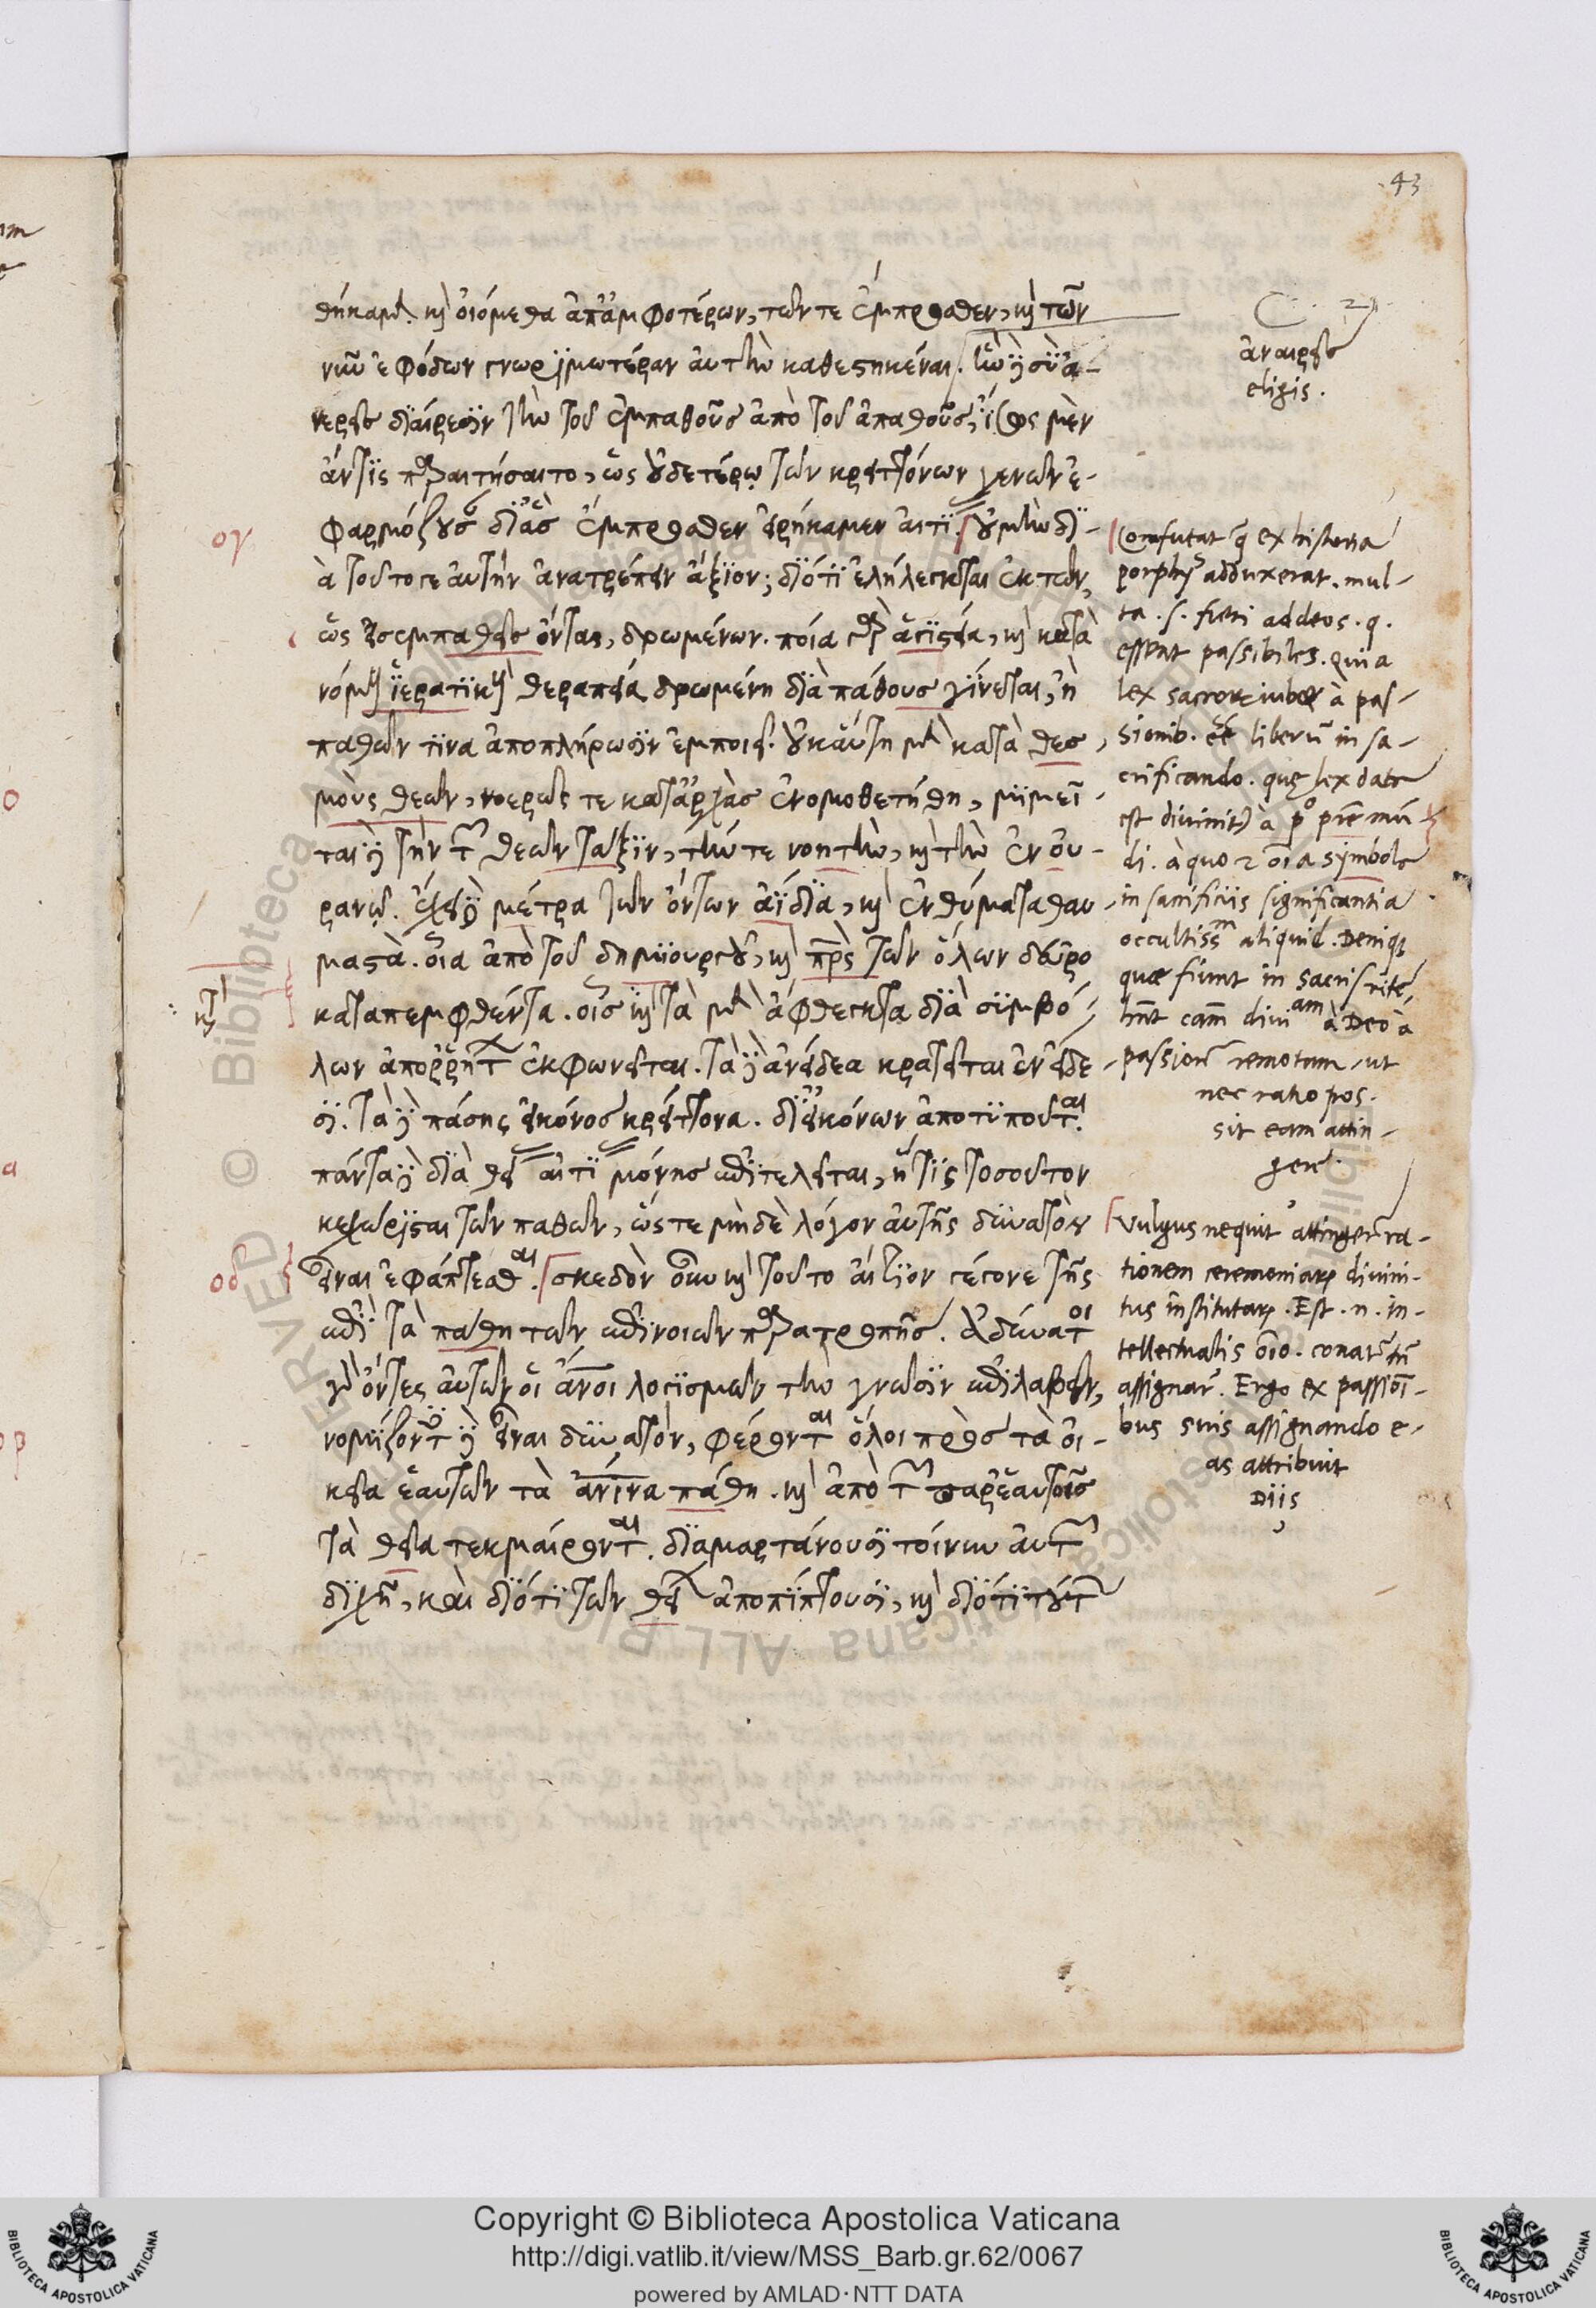 43
θήκαμεν. καὶ οἰόμεθα ἀπ' ἀμφοτέρων, τῶν τε ἔμπροσθεν, καὶ τῶν
νῦν ἐφόδων γνωριμωτέραν αὐτὴν καθεστηκέναι. ἣν δὲ σὺ ἀ-
νερεῖς διαίρεσιν τὴν τοῦ ἐμπαθοῦς ἀπὸ τοῦ ἀπαθοῦς, ἴσως μὲν
ἄν τις παραιτήσαιτο, ὡς οὐδετέρῳ τῶν κρειττόνων γενῶν ἐ-
φαρμόζουσαν δι' ἃς ἔμπροσθεν εἰρήκαμεν αἰτίας. οὐ μὴν δι-
ὰ τοῦτο γε αὐτὴν ἀνατρέπειν ἄξιον; διότι ἐλήλεγκται ἐκ τῶν,
ὡς εἰς ἐμπαθεῖς ὄντας, δρωμένων. ποία γὰρ ἁγιστεία, καὶ κατὰ
νόμους ἱερατικοὺς θεραπεία δρωμένη διὰ πάθους γίνεται, ἢ
παθῶν τινα ἀποπλήρωσιν ἐμποιεῖ. οὐκ αὕτη μὲν κατὰ θεσ-
μοὺς θεῶν, νοερῶς τε κατ' ἀρχὰς ἐνομοθετήθη, μιμεῖ-
ται δὲ τὴν τῶν θεῶν τάξιν, τήν τε νοητὴν, καὶ τὴν ἐν οὐ-
ρανῷ. ἔχει δὲ μέτρα τῶν ὄντων ἀΐδια, καὶ ἐνθύματα θαυ-
μαστὰ. οἷα ἀπὸ τοῦ δημιουργοῦ, καὶ πρς τῶν ὅλων δεῦρο
καταπεμφθέντα. οἷς καὶ τὰ μὲν ἄφθεγκτα διὰ συμβό-
λων ἀπορρήτων ἐκφωνεῖται. τὰ δὲ ἀνείδεα κρατεῖται ἐν εἴδε-
σι. τὰ δὲ πάσης εἰκόνος κρείττονα. δι' εἰκόνων ἀποτυποῦται.
πάντα δὲ διὰ θείας αἰτίας μόνης ἐπιτελεῖται, ἥτις τοσοῦτον
κεχώρισται τῶν παθῶν, ὥστε μηδὲ λόγον αὐτῆς δυνατὸν
εἶναι ἐφάπτεσθαι. σχεδὸν οὖν καὶ τοῦτο αἴτιον γέγονε τῆς
ἐπὶ τὰ πάθη τῶν ἐπινοιῶν παρατροπῆς. ἀδύνατοι
γὰρ ὄντες αὐτῶν οἱ ἄνοι λογισμῶν τὴν γνῶσιν ἐπιλαβεῖν,
νομίζοντες δὲ εἶναι δυνατόν, φέρονται ὅλοι πρὸς τὰ οἰ-
κεῖα ἑαυτῶν τὰ ἀνινα πάθη. καὶ ἀπὸ τῶν παρ' ἑαυτοῖς
τὰ θεῖα τεκμαίρονται. διαμαρτάνουσι τοίνυν αὐτῶν
διχῆ, καὶ διότι τῶν θείων ἀποπίπτουσι, καὶ διότι τούτων
ἀναιρεῖς
eligis.
ογ
Confutat q ex historia
porphy adduxerat. mul-
ta .s. fieri ad deos. q.
essent passibiles. quia
lex sacrorum iubet à pas-
sionib. eē liberū in sa-
crificando. quę lex data
est diuinit à p° pre mū-
di. à quo et oīa symbola
in sacrificiis significantia
occultiss aliquid. Deniq
quae fiunt in sacris rite,
hnt cam diuiam à Deo à
passione remotum, ut
nec ratio pos-
sit eam attin-
gere.
οδ
Vulgus nequit attingere ra-
tionem ceremoniarum diuini-
tus institutarum. Est .n. in-
tellectualis oīo. conatur tn
assignare. Ergo ex passiōi-
bus suis assignando e-
as attribuit
Diis
Copyright © Biblioteca Apostolica Vaticana
http://digi.vatlib.it/view/MSS_Barb.gr.62/0067
powered by AMLAD·NTT DATA
BIBLIOTECA APOSTOLICA VATICANA
BIBLIOTECA APOSTOLICA VATICANA